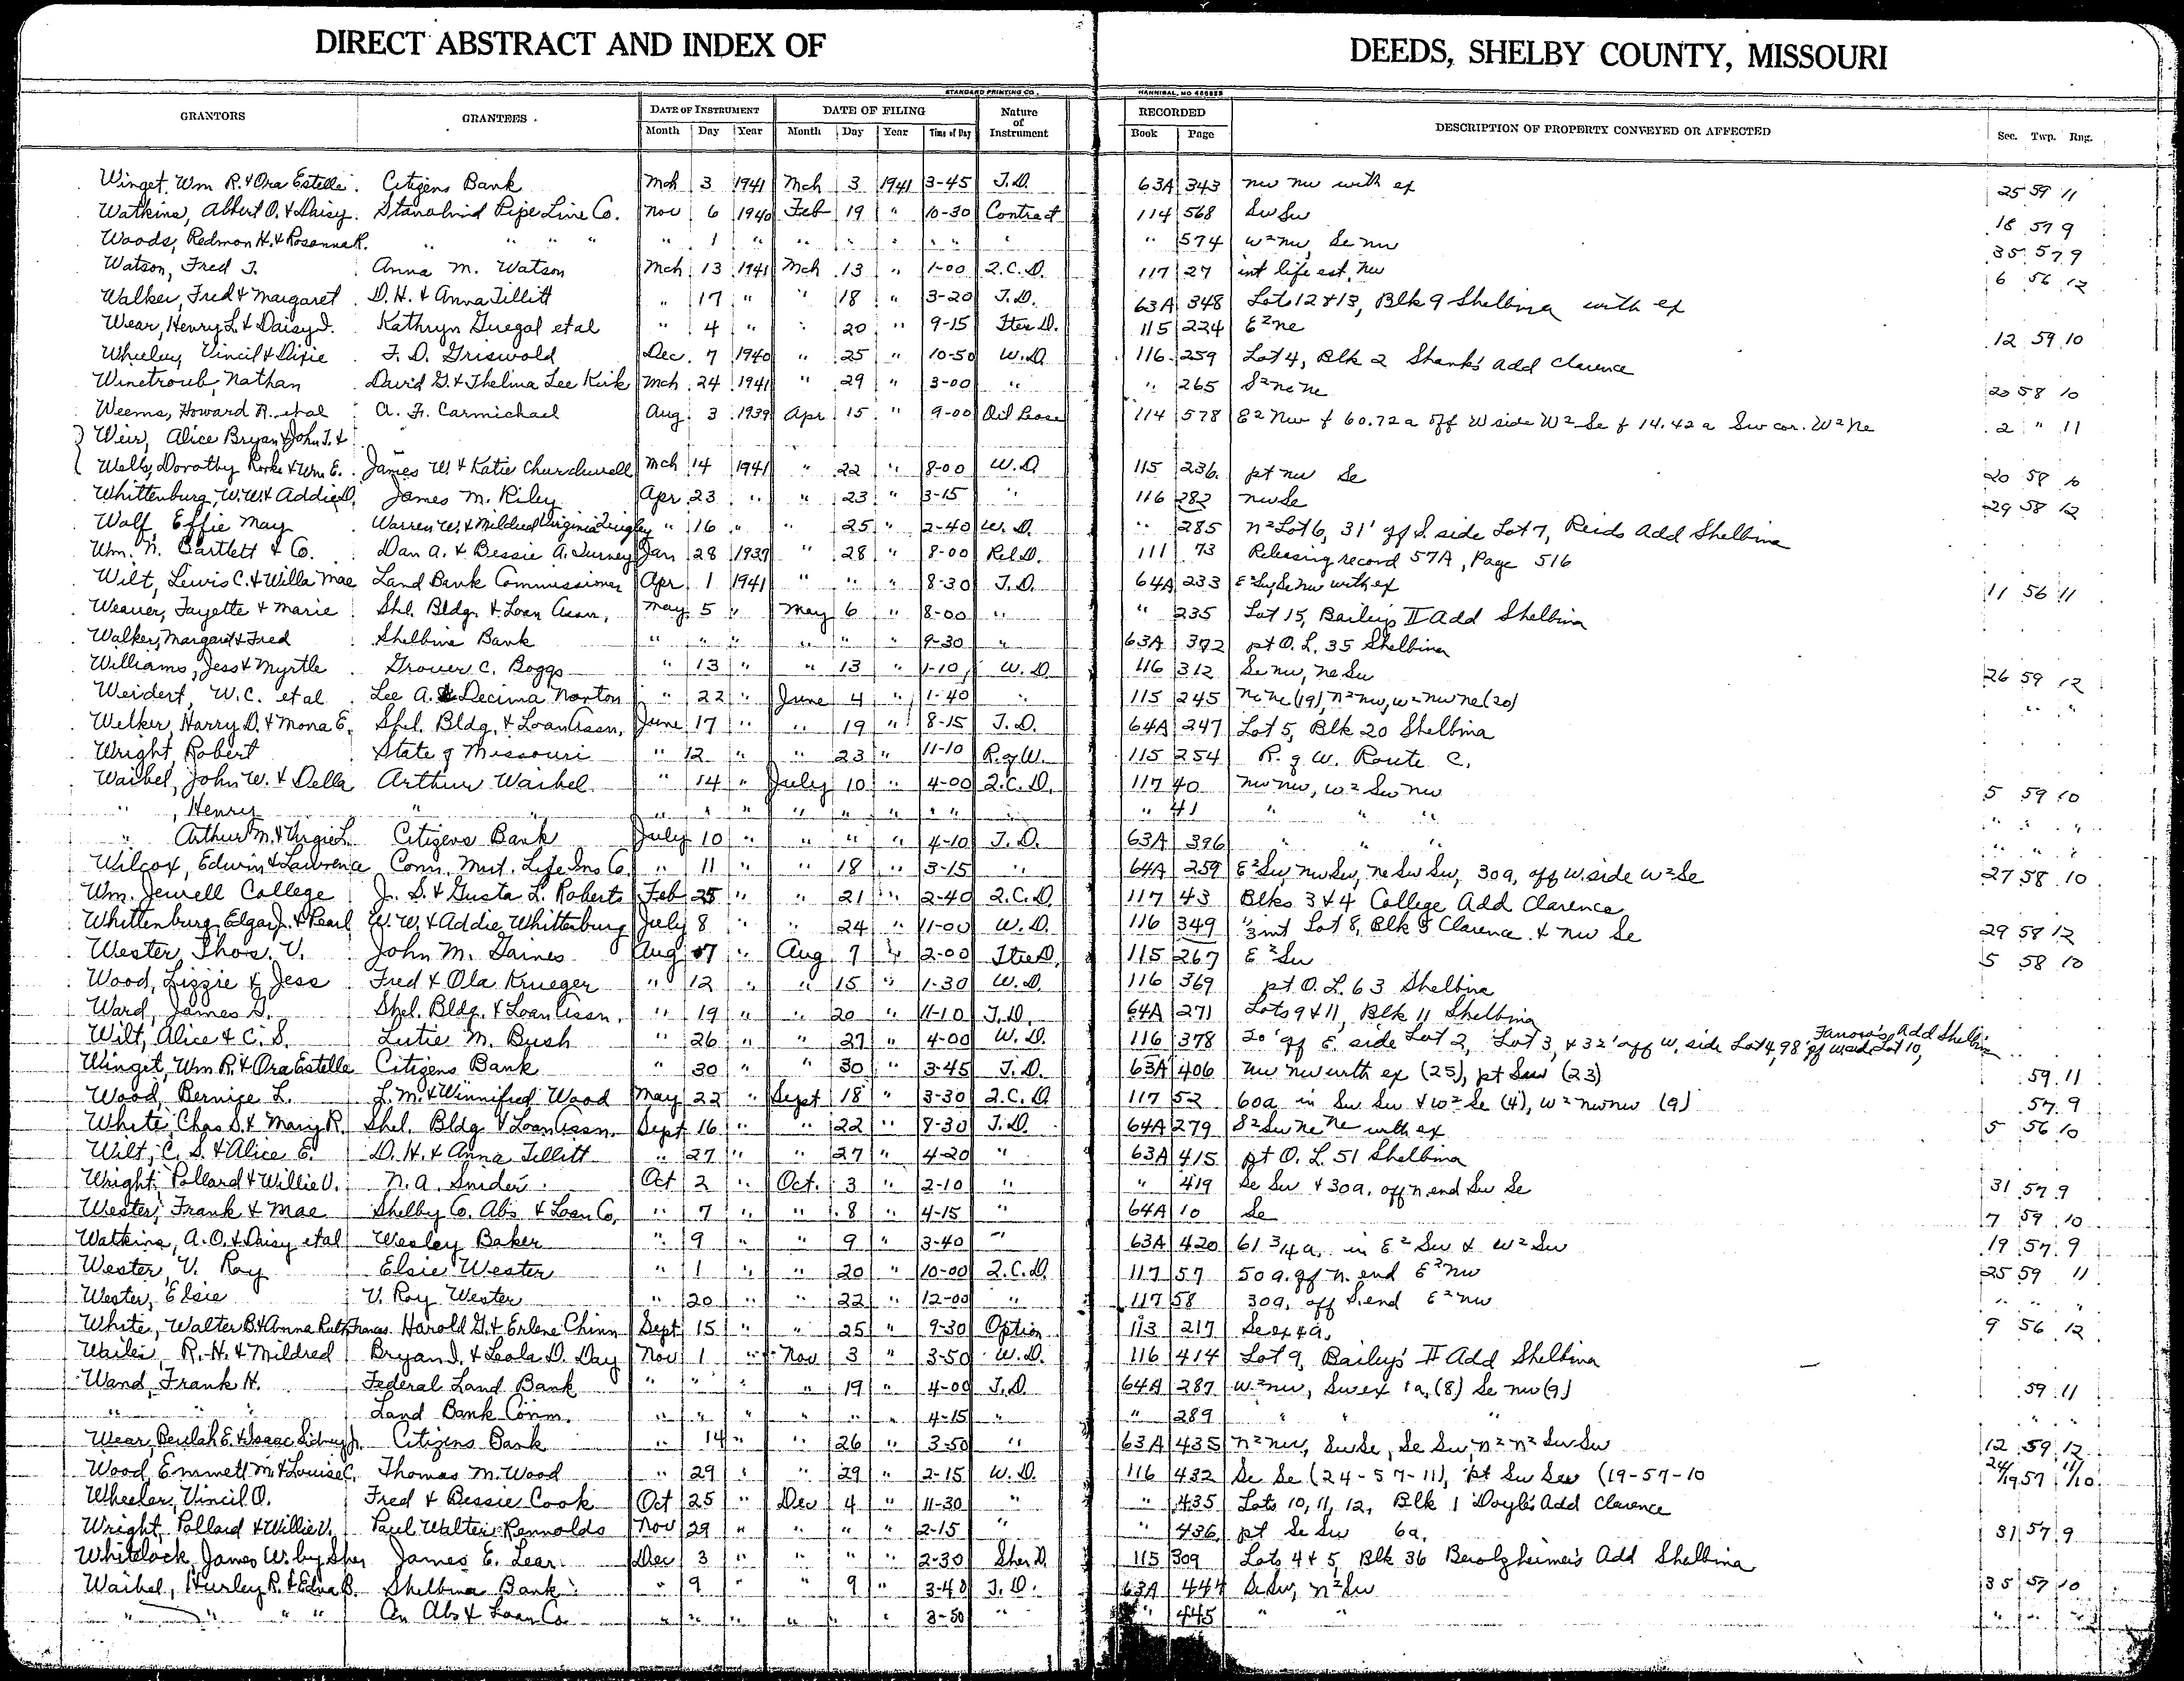 DIRECT ABSTRACT AND INDEX OF DEEDS, SHELBY COUNTY, MISSOURI
STANDARD PRINTING CO. HANNIBAL, MO
GRANTORS GRANTEES DATE OF INSTRUMENT DATE OF FILING Nature of Instrument RECORDED DESCRIPTION OF PROPERTY CONVEYED OR AFFECTED Sec. Twp. Rng.
Month Day Year Month Day Year Time of Day Book Page
Winget, Wm R. & Ora Estelle Citizens Bank Mch 3 1941 Mch 3 1941 3-45 T.D. 63A 343 nw nw with ex 25 59 11
Watkins, Albert O. & Daisy Stanolind Pipe Line Co. Nov 6 1940 Feb 19 " 10-30 Contract 114 568 Sw Sw 18 57 9
Woods, Redmon H. & Rosanna R. " " " " " 1 " " " " " " " " 574 w² nw, Se nw 35 57 9
Watson, Fred T. Anna M. Watson Mch 13 1941 Mch 13 " 1-00 Q.C.D. 117 27 int life est, nw 6 56 12
Walker, Fred & Margaret D. H. & Anna Tillitt " 17 " " 18 " 3-20 T.D. 63A 348 Lots 12 & 13, Blk 9 Shelbina with ex
Wear, Henry L. & Daisy I. Kathryn Guegal et al " 4 " " 20 " 9-15 Ttee D. 115 224 E² ne 12 59 10
Wheeley, Vincil & Dixie F. D. Griswold Dec. 7 1940 " 25 " 10-50 W.D. 116 259 Lot 4, Blk 2 Shank's Add Clarence
Winetroub, Nathan David G. & Thelma Lee Kirk Mch 24 1941 " 29 " 3-00 " " 265 S² ne ne 20 58 10
Weems, Howard A. et al A. F. Carmichael Aug. 3 1939 Apr 15 " 9-00 Oil Lease 114 578 E² Nw & 60.72 a off W side W² Se & 14.42 a Sw cor. W² Ne 2 " 11
Weir, Alice Bryan & John T. &
Wells, Dorothy Rooke & Wm E. James W & Katie Churchwell Mch 14 1941 " 22 " 8-00 W.D. 115 236 pt nw Se 20 58 10
Whittenburg, W.W. & Addie D. James M. Riley Apr 23 " " 23 " 3-15 " 116 282 nw Se 29 58 12
Wolf, Effie May Warren W. & Mildred Virginia Quigley " 16 " " 25 " 2-40 W.D. " 285 n² Lot 6, 31' off S. side Lot 7, Reids Add Shelbina
Wm. N. Bartlett & Co. Dan A. & Bessie A. Turney Jan 28 1937 " 28 " 8-00 Rel D. 111 73 Releasing record 57A, Page 516
Wilt, Lewis C. & Willa Mae Land Bank Commissioner Apr 1 1941 " " " 8-30 T.D. 64A 233 E² Sw, Se nw with ex 11 56 11
Weaver, Fayette & Marie Shel. Bldg. & Loan Assn. May 5 " May 6 " 8-00 " " 235 Lot 15, Bailey's II Add Shelbina
Walker, Margaret & Fred Shelbina Bank " " " " " " 9-30 " 63A 392 pt O. L. 35 Shelbina
Williams, Jess & Myrtle Grover C. Boggs " 13 " " 13 " 1-10 W.D. 116 312 Se nw, ne Sw 26 59 12
Weidert, W.C. et al Lee A. & Decima Norton " 22 " June 4 " 1-40 " 115 245 ne ne (19), n² nw, w² nw ne (20) " "
Welker, Harry D. & Mona E. Shel. Bldg. & Loan Assn. June 17 " " 19 " 8-15 T.D. 64A 247 Lot 5, Blk 20 Shelbina
Wright, Robert State of Missouri " 12 " " 23 " 11-10 R. of W. 115 254 R. of W. Route C.
Waibel, John W. & Della Arthur Waibel " 14 " July 10 " 4-00 Q.C.D. 117 40 nw nw, w² Sw nw 5 59 10
" , Henry " " " " " " " " " " 41 " " " " " "
" Arthur M. & Virgie L. Citizens Bank July 10 " " " " 4-10 T.D. 63A 396 " " " " "
Wilcox, Edwin & Lawrence Conn. Mut. Life Ins Co. " 11 " " 18 " 3-15 " 64A 259 E² Sw, nw Sw, ne Sw Sw, 30a, off w. side w² Se 27 58 10
Wm. Jewell College J. S. & Gusta L. Roberts Feb 25 " " 21 " 2-40 Q.C.D. 117 43 Blks 3 & 4 College Add Clarence
Whittenburg, Edgar J. & Pearl W. W. & Addie Whittenburg July 8 " " 24 " 11-00 W.D. 116 349 1/3 int Lot 8, Blk 8 Clarence & nw Se 29 58 12
Wester, Thos. V. John M. Gaines Aug 7 " Aug 7 " 2-00 Ttee D. 115 267 E² Sw 5 58 10
Wood, Lizzie & Jess Fred & Ola Krueger " 12 " " 15 " 1-30 W.D. 116 369 pt O. L. 63 Shelbina
Ward, James G. Shel. Bldg. & Loan Assn. " 19 " " 20 " 11-10 T.D. 64A 271 Lots 9 & 11, Blk 11 Shelbina
Wilt, Alice & C. S. Lutie M. Bush " 26 " " 27 " 4-00 W.D. 116 378 20' off E. side Lot 2, Lot 3, & 32' off W. side Lot 4, 98' off w side Lot 10, Add Shelbina
Winget, Wm R. & Ora Estelle Citizens Bank " 30 " " 30 " 3-45 T.D. 63A 406 nw nw with ex (25), pt Sw (23) 59 11
Wood, Bernice L. L. M. & Winnifred Wood May 22 " Sept 18 " 3-30 Q.C.D. 117 52 60a in Sw Sw & w² Se (4), w² nw nw (9) 57 9
White, Chas S. & Mary R. Shel. Bldg & Loan Assn. Sept 16 " " 22 " 8-30 T.D. 64A 279 S² Sw ne ne with ex 5 56 10
Wilt, C. S. & Alice E. D. H. & Anna Tillitt " 27 " " 27 " 4-20 " 63A 415 pt O. L. 51 Shelbina
Wright, Pollard & Willie V. N. A. Snider Oct 2 " Oct. 3 " 2-10 " " 419 Se Sw & 30a, off n. end Sw Se 31 57 9
Wester, Frank & Mae Shelby Co. Abs & Loan Co. " 7 " " 8 " 4-15 " 64A 10 Se 7 59 10
Watkins, A. O. & Daisy et al Wesley Baker " 9 " " 9 " 3-40 " 63A 420 61 3/4 a. in E² Sw & W² Sw 19 57 9
Wester, V. Roy Elsie Wester " 1 " " 20 " 10-00 Q.C.D. 117 57 50 a. off n. end E² nw 25 59 11
Wester, Elsie V. Roy Wester " 20 " " 22 " 12-00 " 117 58 30a, off S. end E² nw " " "
White, Walter B. & Anna Ruth Frances Harold G. & Erlene Chinn Sept 15 " " 25 " 9-30 Option 113 217 Se ex 4a. 9 56 12
Wailes, R. H. & Mildred Bryan I. & Leola D. Day Nov 1 " Nov 3 " 3-50 W.D. 116 414 Lot 9, Bailey's II Add Shelbina
Wand, Frank H. Federal Land Bank " " " " 19 " 4-00 T.D. 64A 287 w² nw, Sw ex 1a, (8) Se nw (9) 59 11
" " " Land Bank Comm. " " " " " " 4-15 " " 289 " " " " "
Wear, Beulah E. & Isaac Sidney Jr. Citizens Bank " 14 " " 26 " 3-50 " 63A 435 n² nw, Sw Se, Se Sw, n² n² Sw Sw 12 59 12
Wood, Emmett M. & Louise C. Thomas M. Wood " 29 " " 29 " 2-15 W.D. 116 432 Se Se (24-57-11), pt Sw Sw (19-57-10 24/19 57 11/10
Wheeler, Vincil O. Fred & Bessie Cook Oct 25 " Dec 4 " 11-30 " " 435 Lots 10, 11, 12, Blk 1 Doyle's Add Clarence
Wright, Pollard & Willie V. Paul Walter Rennolds Nov 29 " " " " 2-15 " " 436 pt Se Sw 6a. 31 57 9
Whitelock, James W. by Sher James E. Lear Dec 3 " " " " 2-30 Sher D. 115 309 Lots 4 & 5, Blk 36 Berolzheimer's Add Shelbina
Waibel, Hurley R. & Edna B. Shelbina Bank " 9 " " 9 " 3-40 T.D. 63A 444 Se Sw, n² Sw 35 57 10
" " " " An Abs & Loan Co. " " " " " " 3-50 " " 445 " " " " "